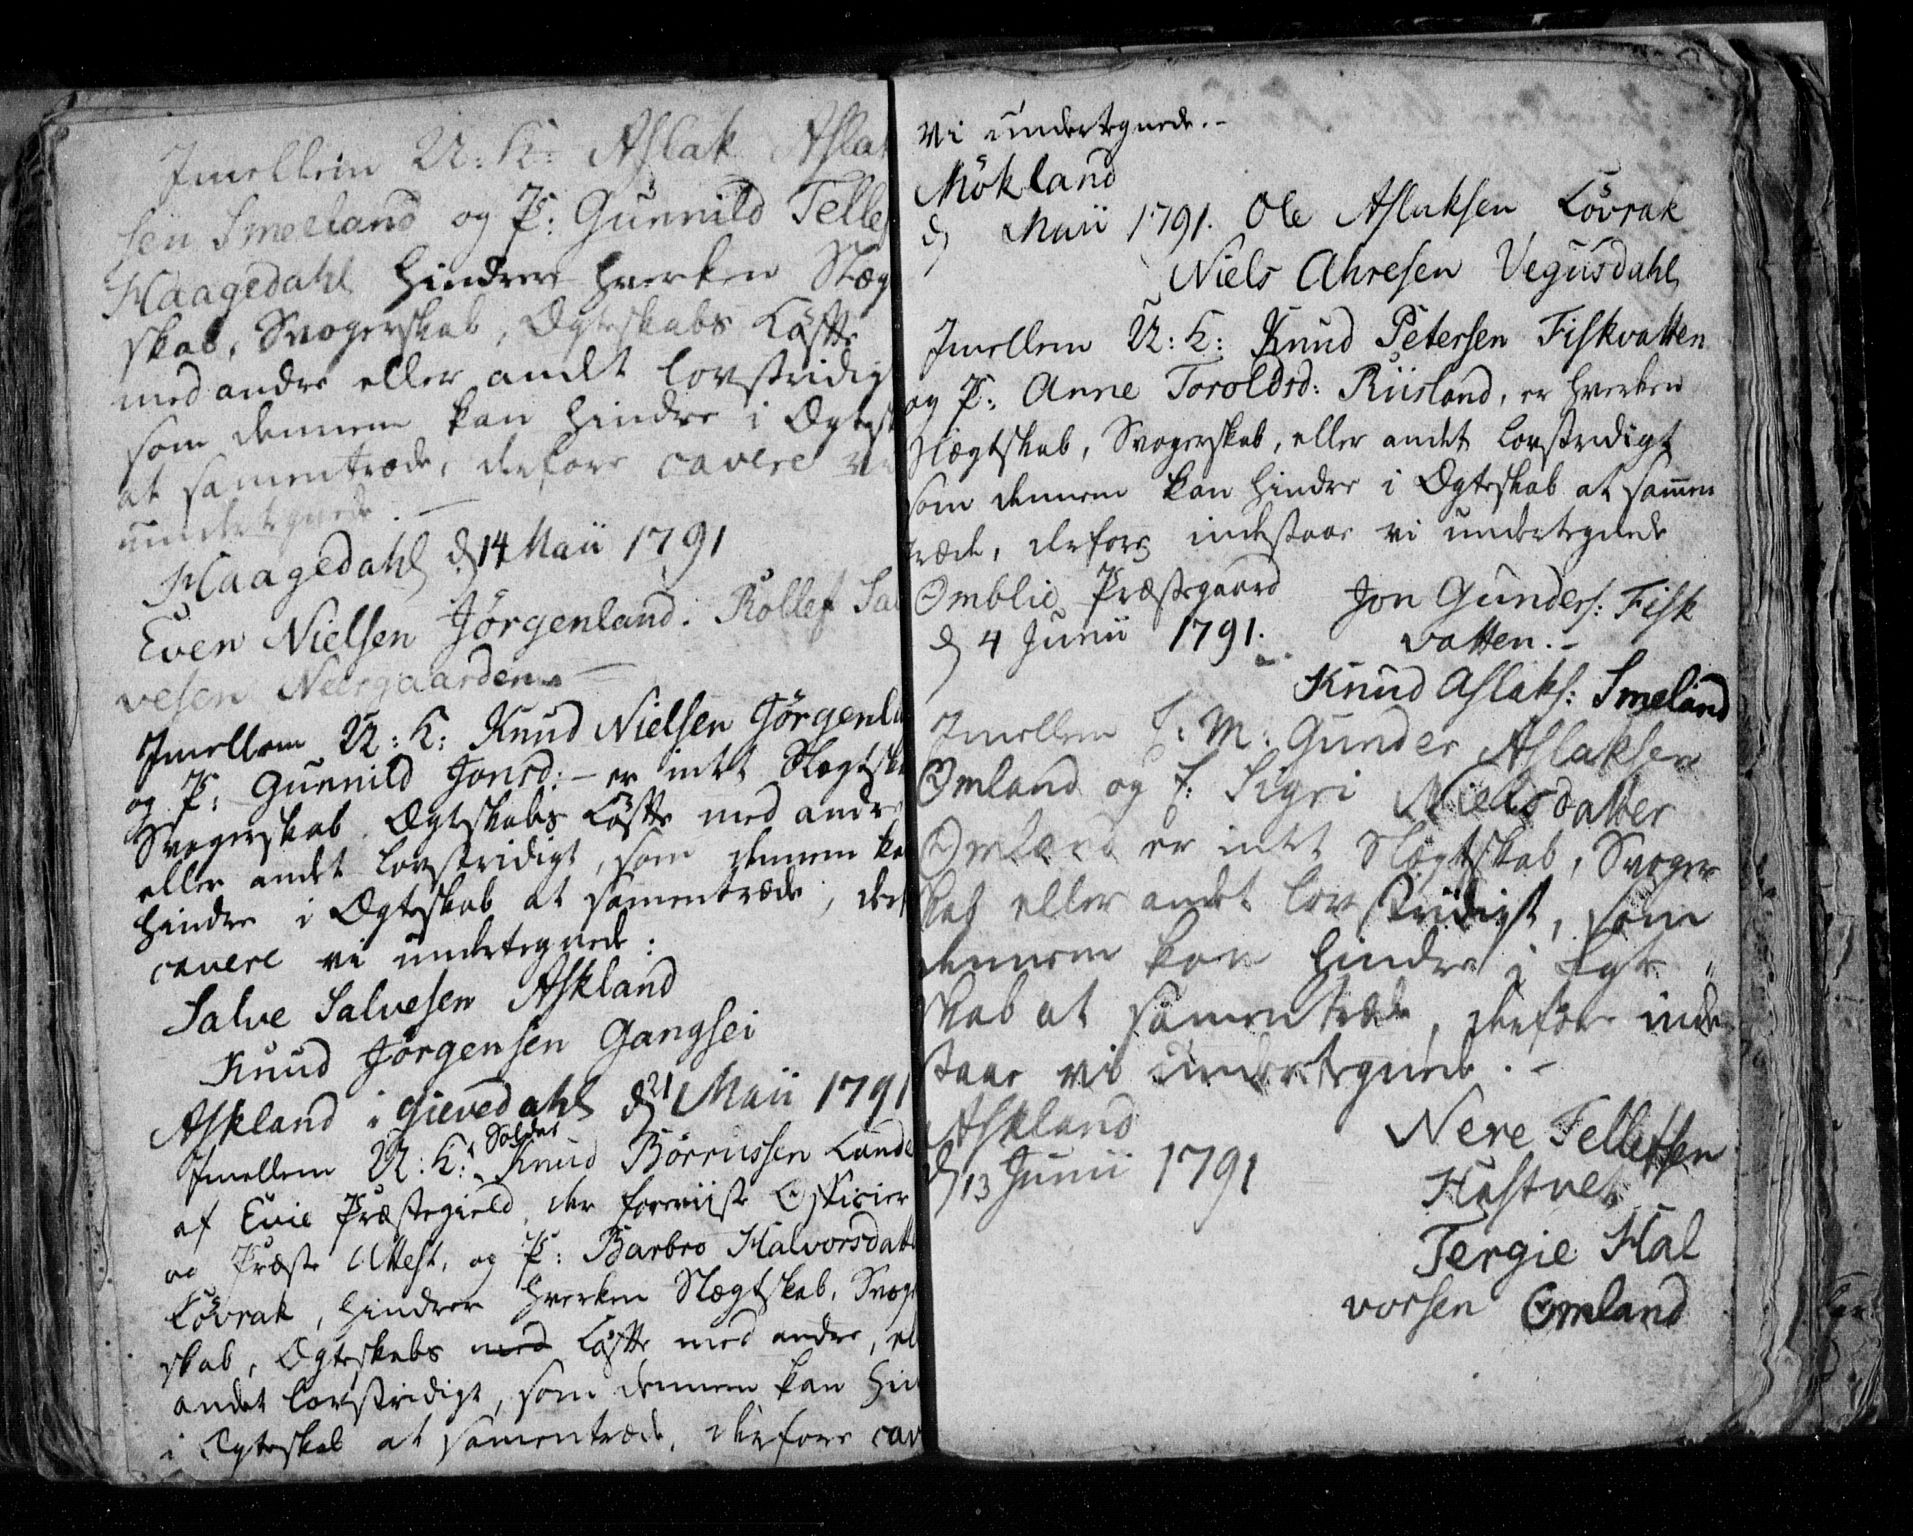 Imellem U: K: Aslak Aslak
sen Smeland og P: Gunnild Telles
Haagedahl hindrer hverken Slæg
skab, Svogerskab, Ægteskabs Løfte
med andre eller andet lovstridigt
som dennem kan hindre i Ægtesk
at samentræde, derfore cavere vi
undertegnede. —
Haagedahl d 14 Maii 1791
Even Nielsen Jörgenland. Rollef Sal
vesen Neergaarden. —
Imellem U: K: Knud Nielsen Jörgenla
og P: Gunnild Jonsd: — er intet Slægtska
Svogerskab, Ægteskabs Løfte med andre
eller andet lovstridigt, som dennem ka
hindre i Ægteskab at samentræde, derf
cavere vi undertegnede:
Salve Salvesen Askland
Knud Jörgensen Gangsei
Askland i Gievedahl d 21 Maii 1791
Imellem U: K: Soldat Knud Börrussen Lande
af Evie Præstegield, der foreviiste Officier
og Præste Attest, og P: Barbro Halvorsdatt
Lövrak, hindrer hverken Slægtskab, Svoge
skab, Ægteskabs med Løfte med andre, el
andet lovstridigt, som dennem kan hin
i Ægteskab at samentræde, derfore cav
Vi undertegnede. —
Mökland
d Maii 1791. Ole Aslaksen Lövrak
Niels Ahresen Vegusdahl
Imellem U: K: Knud Petersen Fiskvatten
og P: Anne Toroldsd: Riisland, er hverken
Slægtskab, Svogerskab, eller andet lovstridigt
som dennem kan hindre i Ægteskab at samen
træde, derfore indestaae vi undertegnede
Omblie Præstegaard Jon Gunders: Fisk
d 4 Junii 1791. vatten. —
Knud Aslaks: Smeland
Imellem E: M: Gunder Aslaksen
Omland og E: Sigri Nielsdatter
Omland er intet Slægtskab, Svoger
skab eller andet lovstridigt, som
dennem kan hindre i Ægte
skab at samentræde, derfore inde
staae vi undertegnede. —
Askland Nere Tellefsen
d 13 Junii 1791 Hastvet
Tergie Hal
vorsen Omland